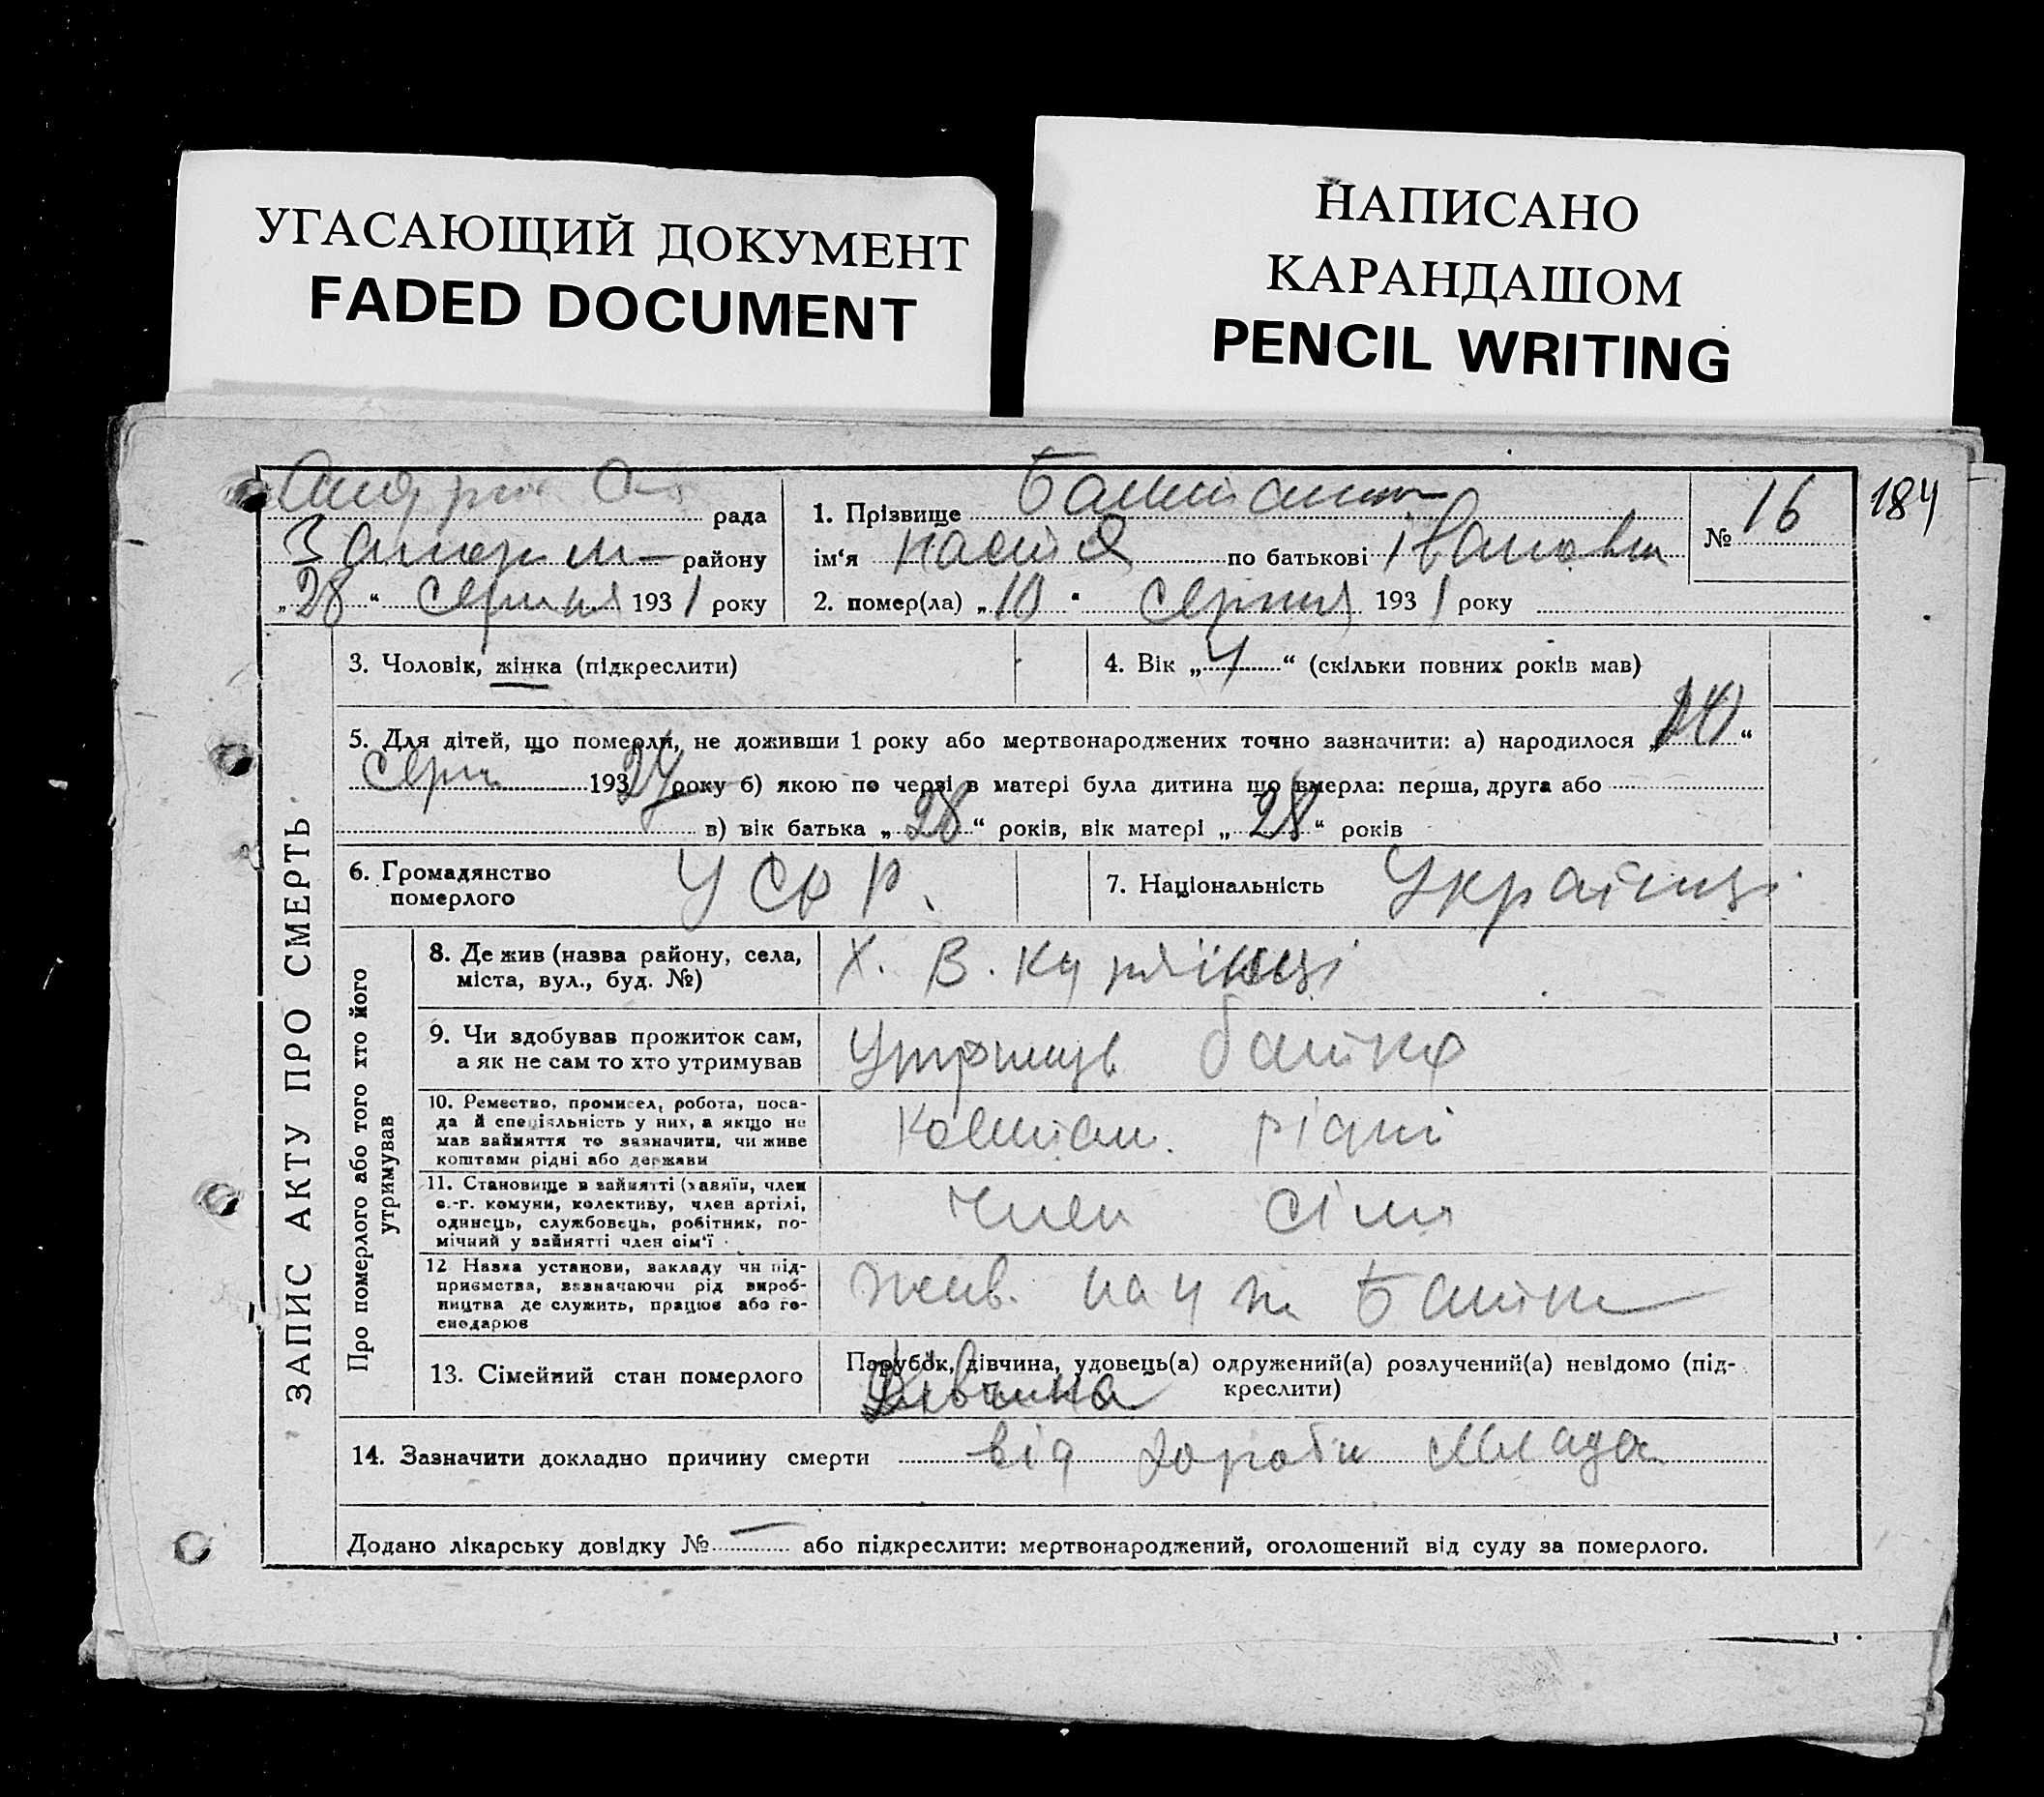 УГАСАЮЩИЙ ДОКУМЕНТ
FADED DOCUMENT
НАПИСАНО
КАРАНДАШОМ
PENCIL WRITING
184
рада
району
„28“ Серпня 1931 року
1. Прізвище
ім‘я Настя по батькові Івановна
2. помер(ла) „10“ Серпня 1931 року
№ 16
ЗАПИС АКТУ ПРО СМЕРТЬ
3. Чоловік, жінка (підкреслити)
4. Вік „4“ (скільки повних років мав)
5. Для дітей, що померли, не доживши 1 року або мертвонароджених точно зазначити: а) народилося „ “
Серп 193 року б) якою по черзі в матері була дитина що вмерла: перша, друга або
в) вік батька „28“ років, вік матері „28“ років
6. Громадянство
померлого
УСРР.
7. Національність Українці
Про померлого або того хто його
утримував
8. Де жив (назва району, села,
міста, вул., буд. №)
Х. В.
9. Чи здобував прожиток сам,
а як не сам то хто утримував
батько
10. Ремество, промисел, робота, поса-
да й спеціяльність у них, а якщо не
мав зайняття то зазначити, чи живе
коштами рідні або держави
Коштам. рідні
11. Становище в зайнятті (хазяїн, член
с.-г. комуни, колективу, член артілі,
одинець, службовець, робітник, по-
мічний у зайнятті член сім‘ї
член сімї
12 Назва установи, закладу чи під-
приємства, зазначаючи рід вироб-
ництва де служить, працює або го-
сподарює
13. Сімейний стан померлого
Парубок, дівчина, удовець(а) одружений(а) розлучений(а) невідомо (під-
креслити)
Дівчина
14. Зазначити докладно причину смерти від хороби
Додано лікарську довідку № — або підкреслити: мертвонароджений, оголошений від суду за померлого.